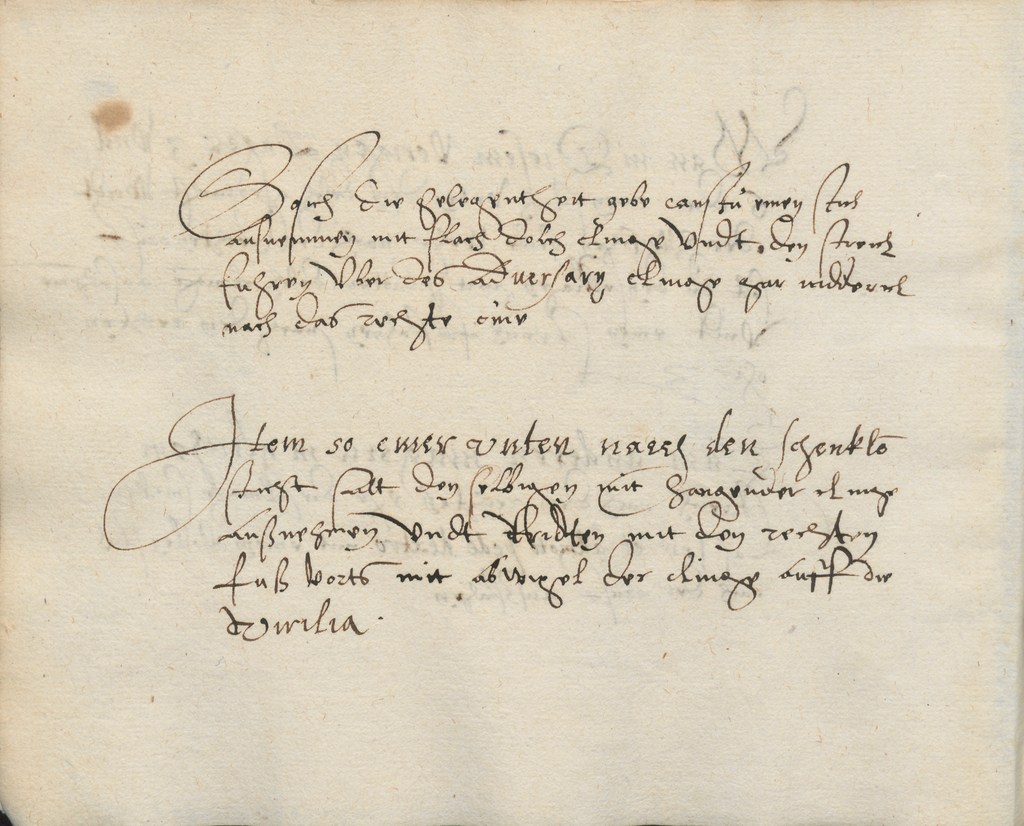 So sich die gelegentheit gebe canstu einen stich
ausnemmen mit flach dolch clinge Undt den streich
fuhren Uber des adversary clinge gar nidderich
nach das rechte eine
Item so einer vnten nach den schenklo
sticht salt den selbigen mit hangender clinge
außnehmen Undt tridten mit den rechten
fuß Vorts mit abweisel der clinge auff die
virilia.